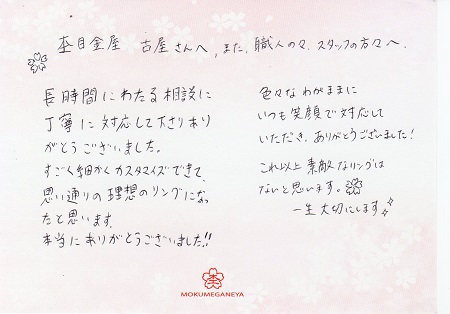 杢目金屋 古屋さんへ、また、職人の々、スタッフの方々へ
長時間にわたる相談に
丁寧に対応して下さりあり
がとうございました。
すごく細かくカスタマイズできて、
思い通りの理想のリングになっ
たと思います。
本当にありがとうございました!!
色々なわがままに
いつも笑顔で対応して
いただき、ありがとうございました!
これ以上素敵なリングは
ないと思います。
一生大切にします
MOKUMEGANEYA